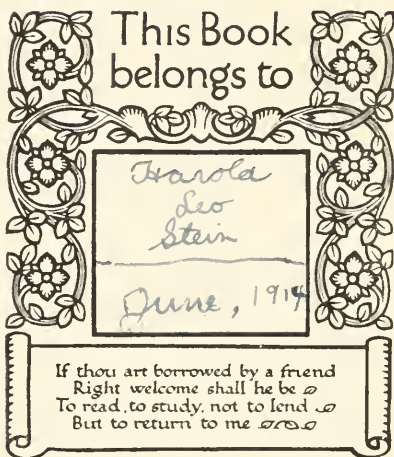 This Book
belongs to
Harold
Leo
Stein
June, 1914
If thou art borrowed by a friend
Right welcome shall he be
To read, to study, not to lend
But to return to me